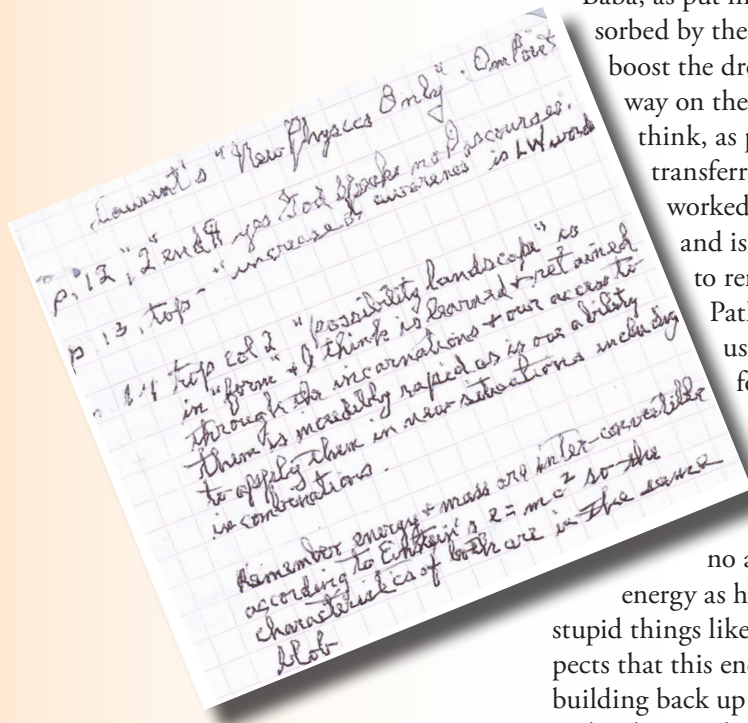 Laurent's "New Physics Only". One Point
p. 12, "2" end ¶ yes God speaks no Discourses.
p. 13, top - "increase of awareness" is LW words
p. 14 top col 2 "possibility landscape" is
in "form" + I think is learned + retained
through the incarnations + our access to
them is incredibly rapid as is our ability
to apply them in new situations including
in combinations.
Remember energy + mass are inter-convertible
according to Einstein's e = mc² so the
characteristics of both are in the same
blob
Baba, as put in
sorbed by the
boost the
way on the
think, as
transferr
worked
and is
to
Path
us
no
energy as
stupid things like
pects that this
building back up